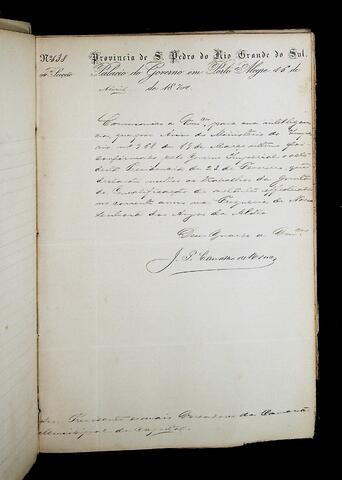 Nº 431
Provincia de S. Pedro do Rio Grande do Sul.
Palacio do Governo em Porto Alegre 16 de
Secção
Abril de 18
Communico a Vmcê para sua intelligen
cia, que por Aviso do Ministerio do Imperio
nº de 18 de Março ultimo foi
confirmada pelo Governo Imperial a
desta Presidencia de 22 de Fevereiro, que
declarou nullos os trabalhos da Junta
de Qualificação de votantes
no corrente anno na Freguesia de Nossa
Senhora dos Anjos da Aldêa
Deus Guarde a Vmcê
J. P.
Snr. Presidente e mais Vereadores da Camara
Municipal da Capital.